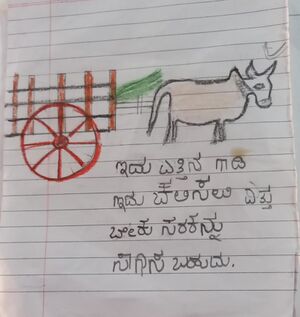 ಇದು ಎತ್ತಿನ ಗಾಡಿ
ಇದು ಚಲಿಸಲು ಎತ್ತು
ಬೇಕು ಸರಕನ್ನು
ಸಾಗಿಸ ಬಹುದು.